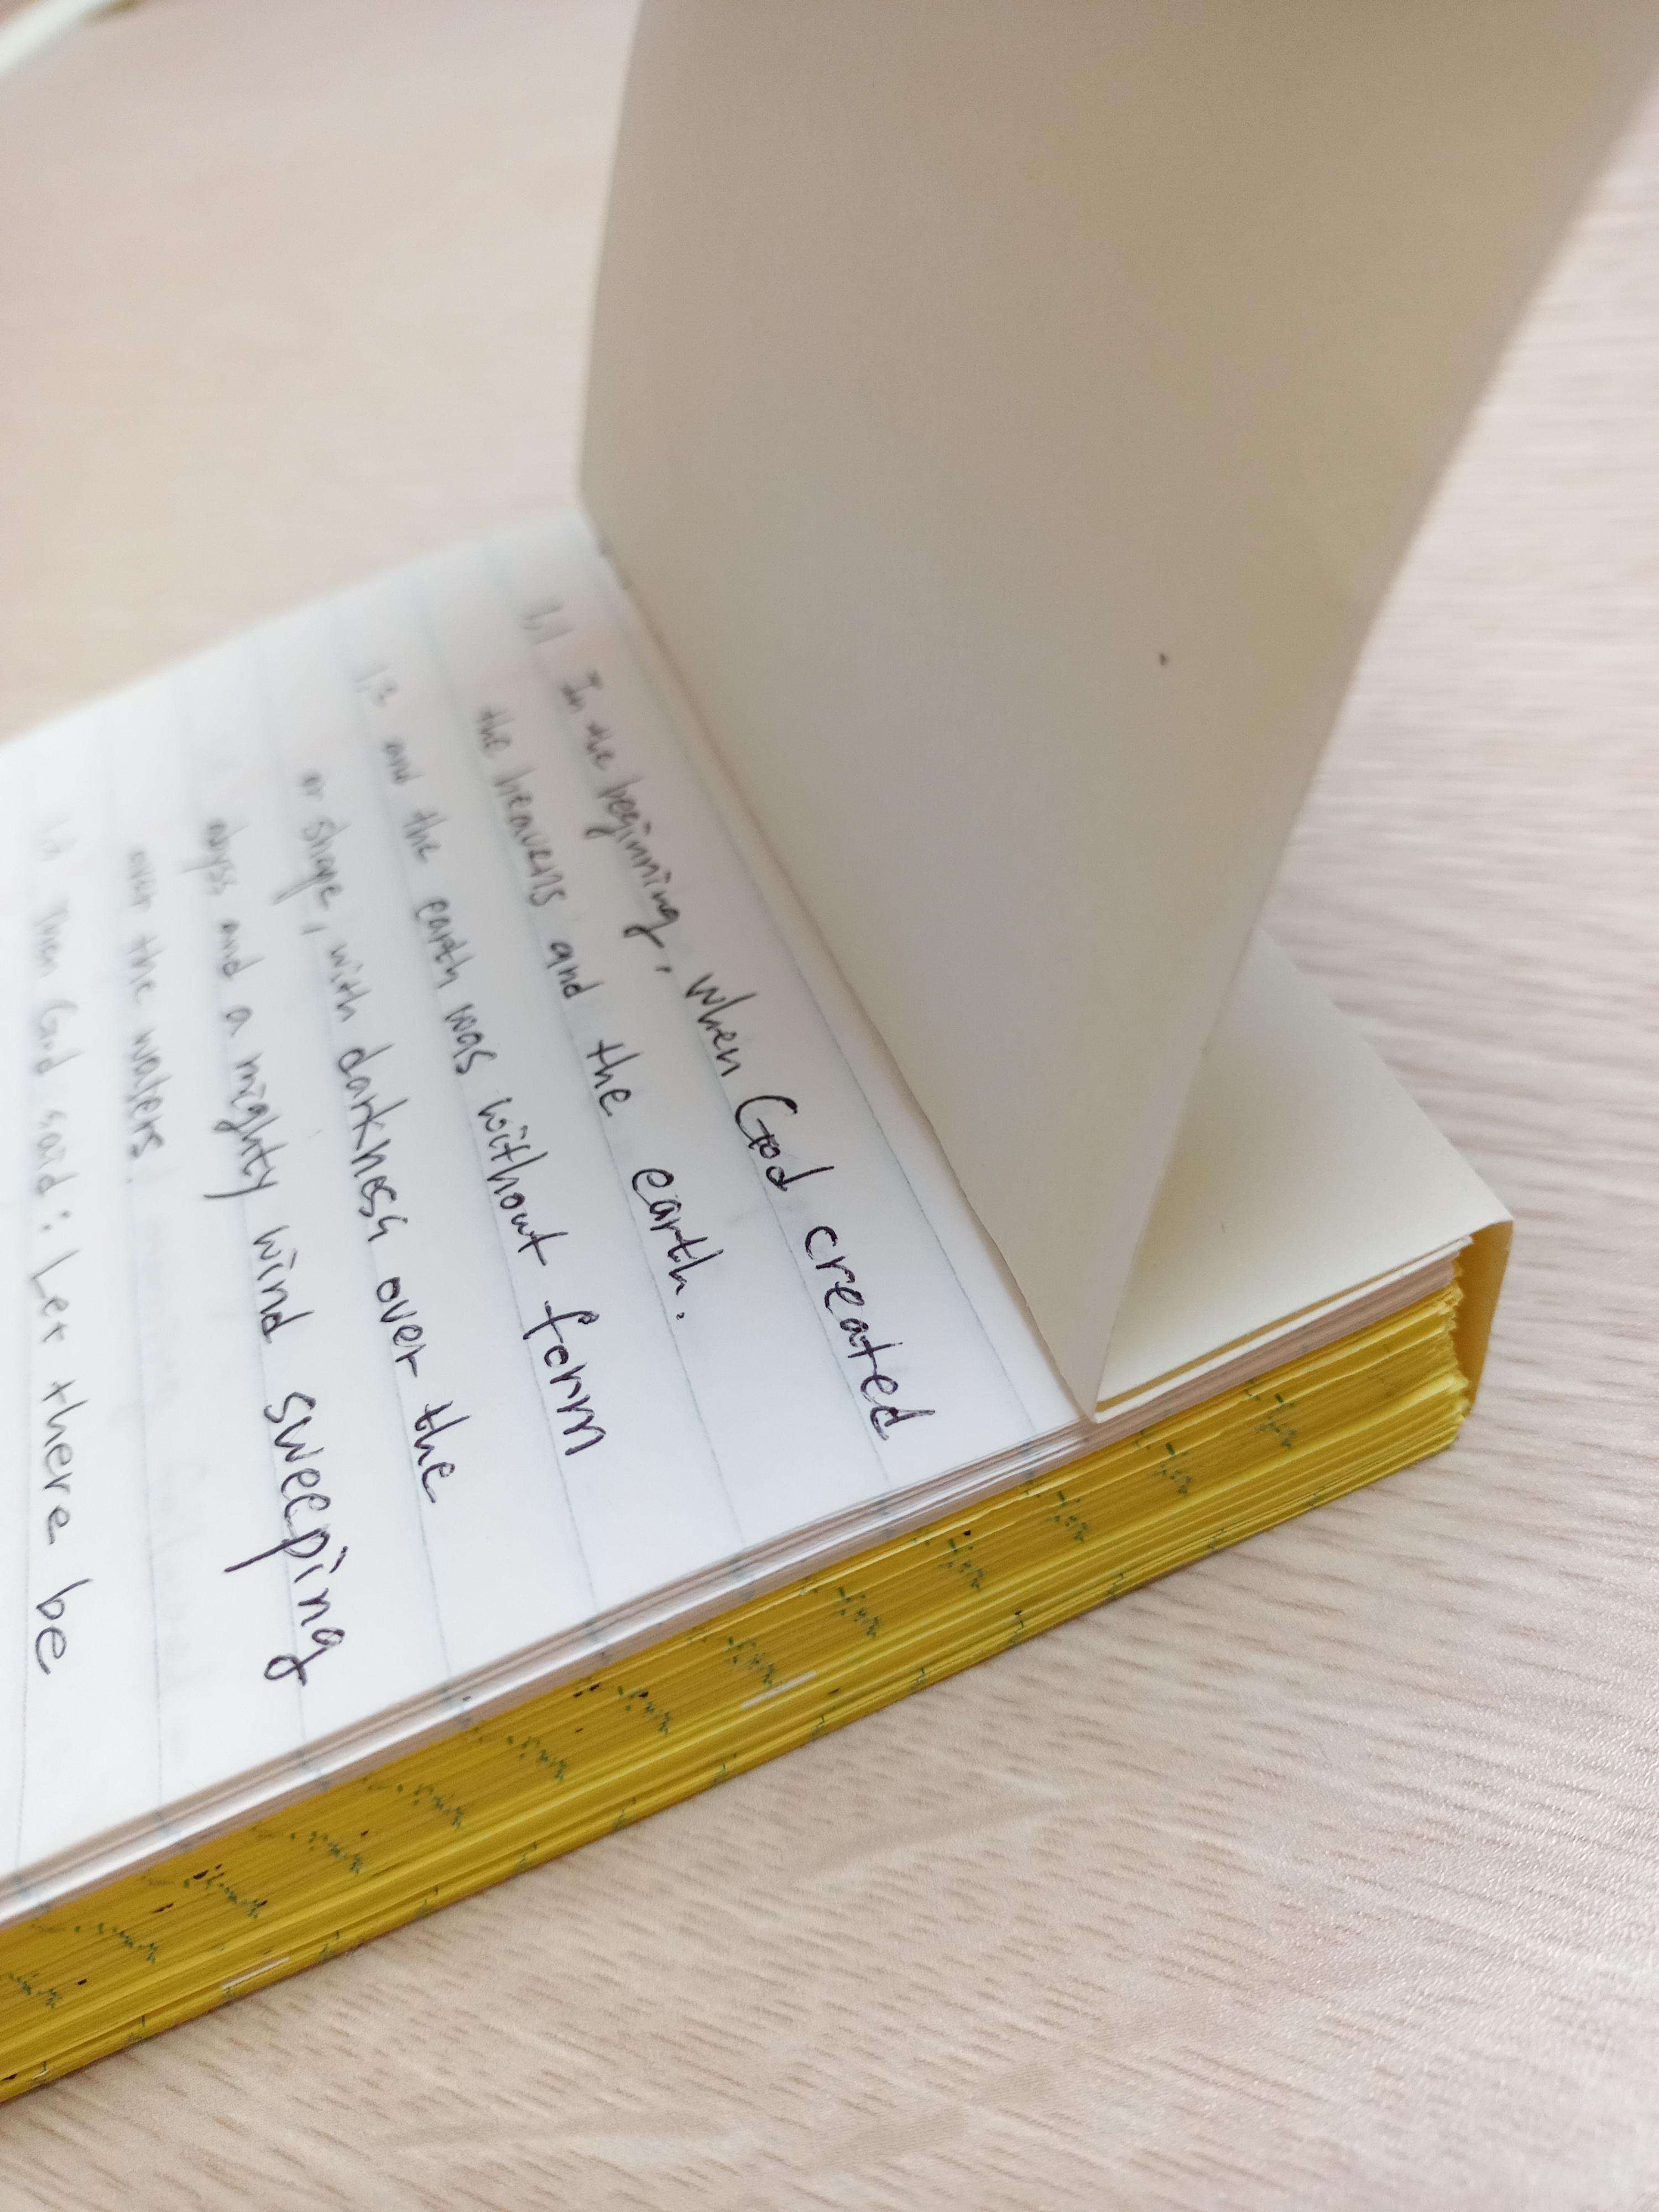 1,1 In the beginning, when God created
the heavens and the earth.
and the earth was without form
or shape, with darkness over the
abyss and a mighty wind sweeping
over the waters.
Then God said: Let there be